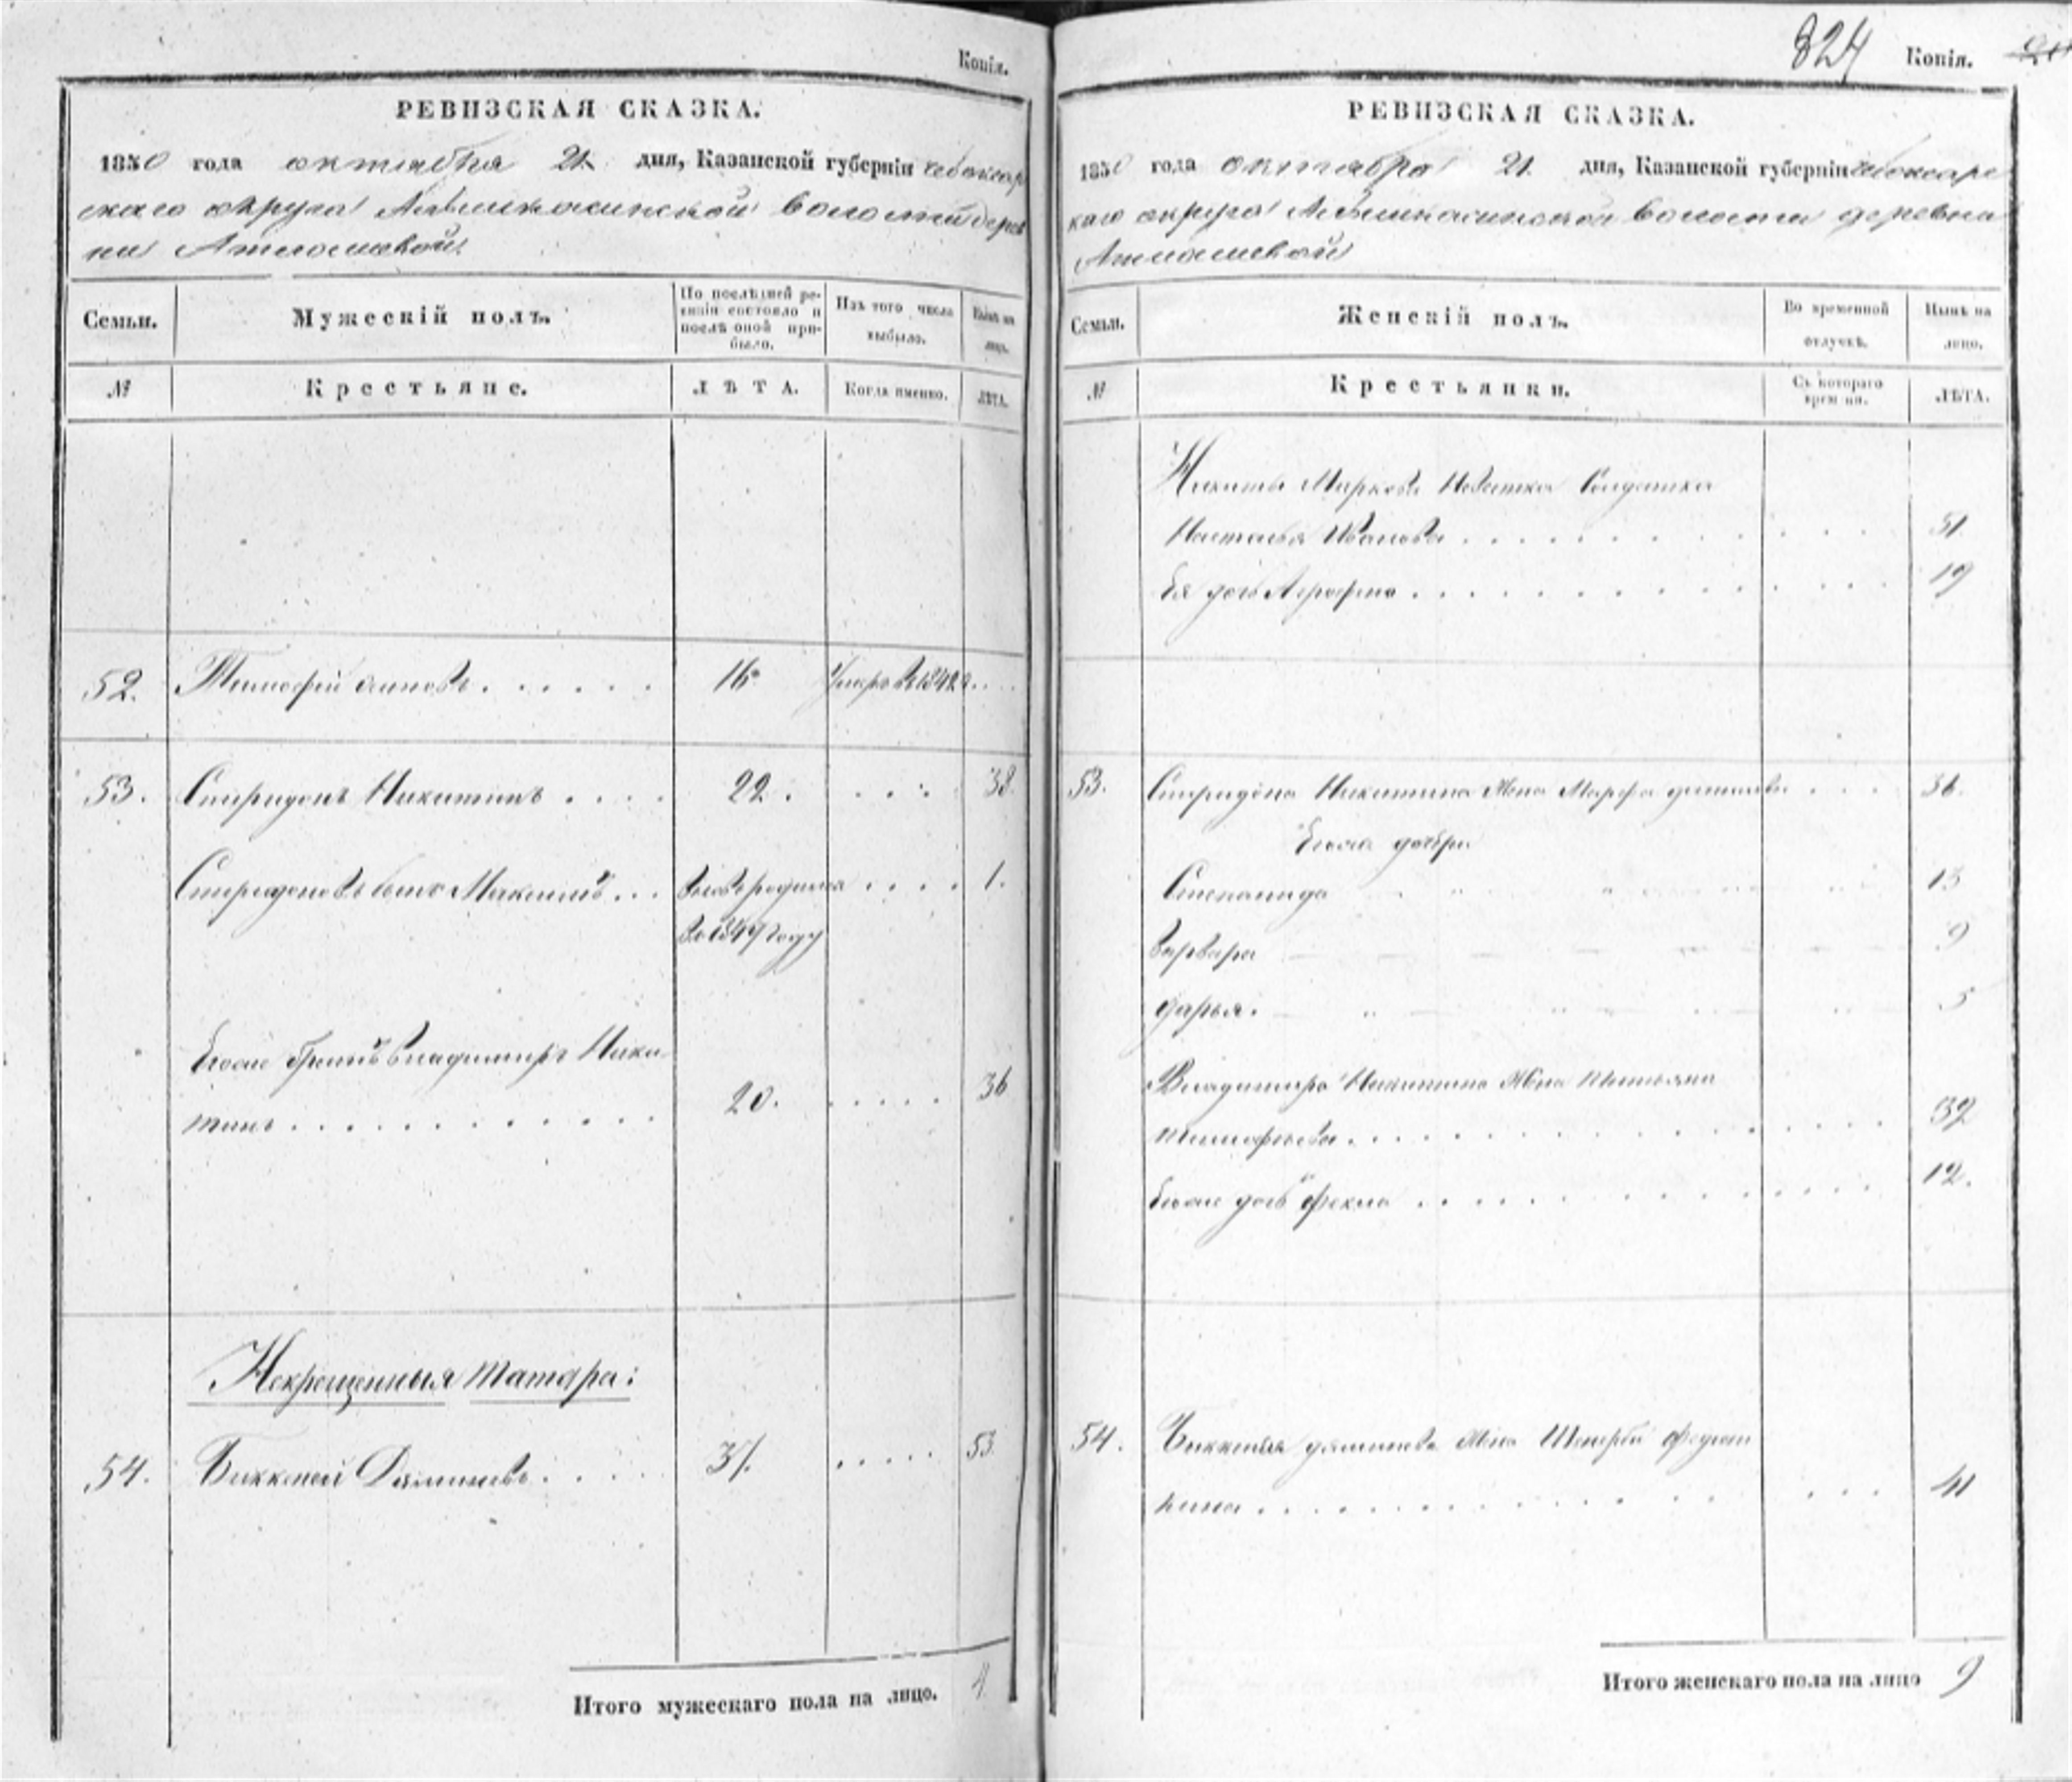 Копія.
РЕВИЗСКАЯ СКАЗКА.
1850 года октября 21 дня, Казанской губерніи Чебоксар
скаго округа волости дерев
ни Атлашевой
Семьи.
Мужескій полъ.
По послѣдней ре-
визіи состояло и
послѣ оной при-
было.
Изъ того числа
выбыло.
Нынѣ на
лицо.
№
Крестьяне.
ЛѢТА.
Когда именно.
ЛѢТА.
52. Тимофей Осиповъ . . . . . . 16 Умеръ въ . . . .
53. Спиридонъ Никитинъ . . . . 22. . . . . 38.
Спиридоновъ сынъ Максимъ . . . вновь родился . . . . 1.
въ 1849 году
Егоже братъ Владимиръ Ники-
тинъ . . . . . . . . . . . . 20. . . . . . 36
Некрещенныя Татара:
54. Биккеней . . . . 31. . . . . . 53.
Итого мужескаго пола на лицо. 4.
824 Копія.
РЕВИЗСКАЯ СКАЗКА.
1850 года октября 21. дня, Казанской губерніи Чебоксарс
каго округа волости деревни
Атлашевой
Семьи.
Женскій полъ.
Во временной
отлускѣ.
Нынѣ на
лицо.
№
Крестьянки.
Съ котораго
врем ни.
ЛѢТА.
Никиты Маркова Невестка Солдатка
Наталья Иванова . . . . . . . . . . 51.
Ея дочь Аграфена . . . . . . . . . . 19
53. Спиридона Никитина Жена Марфа . . . 36.
Егоже дочери
Степанида 13
Варвара 9
Дарья. 5
Владимира Никитина Жена Татьяна
Тимофеева . . . . . . . . . . . . 32
Егоже дочь Фекла . . . . . . . . . . 12.
54. Жена
. . . . . . . . . . . . . . 41
Итого женскаго пола на лицо 9